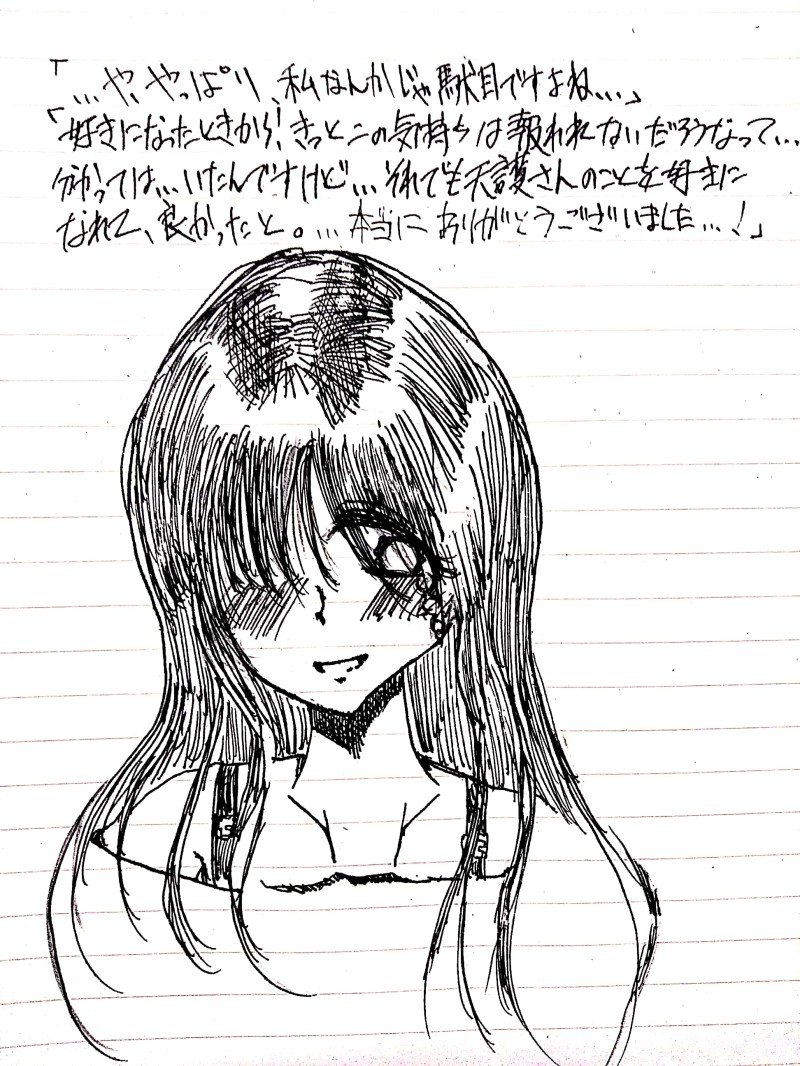 「…や、やっぱり、私なんかじゃ駄目ですよね…」
「好きになったときから、きっとこの気持ちは報われないだろうなって…
分かっては…いたんですけど…それでも天護さんのことを好きに
なれて、良かったと。…本当にありがとうございました…!」